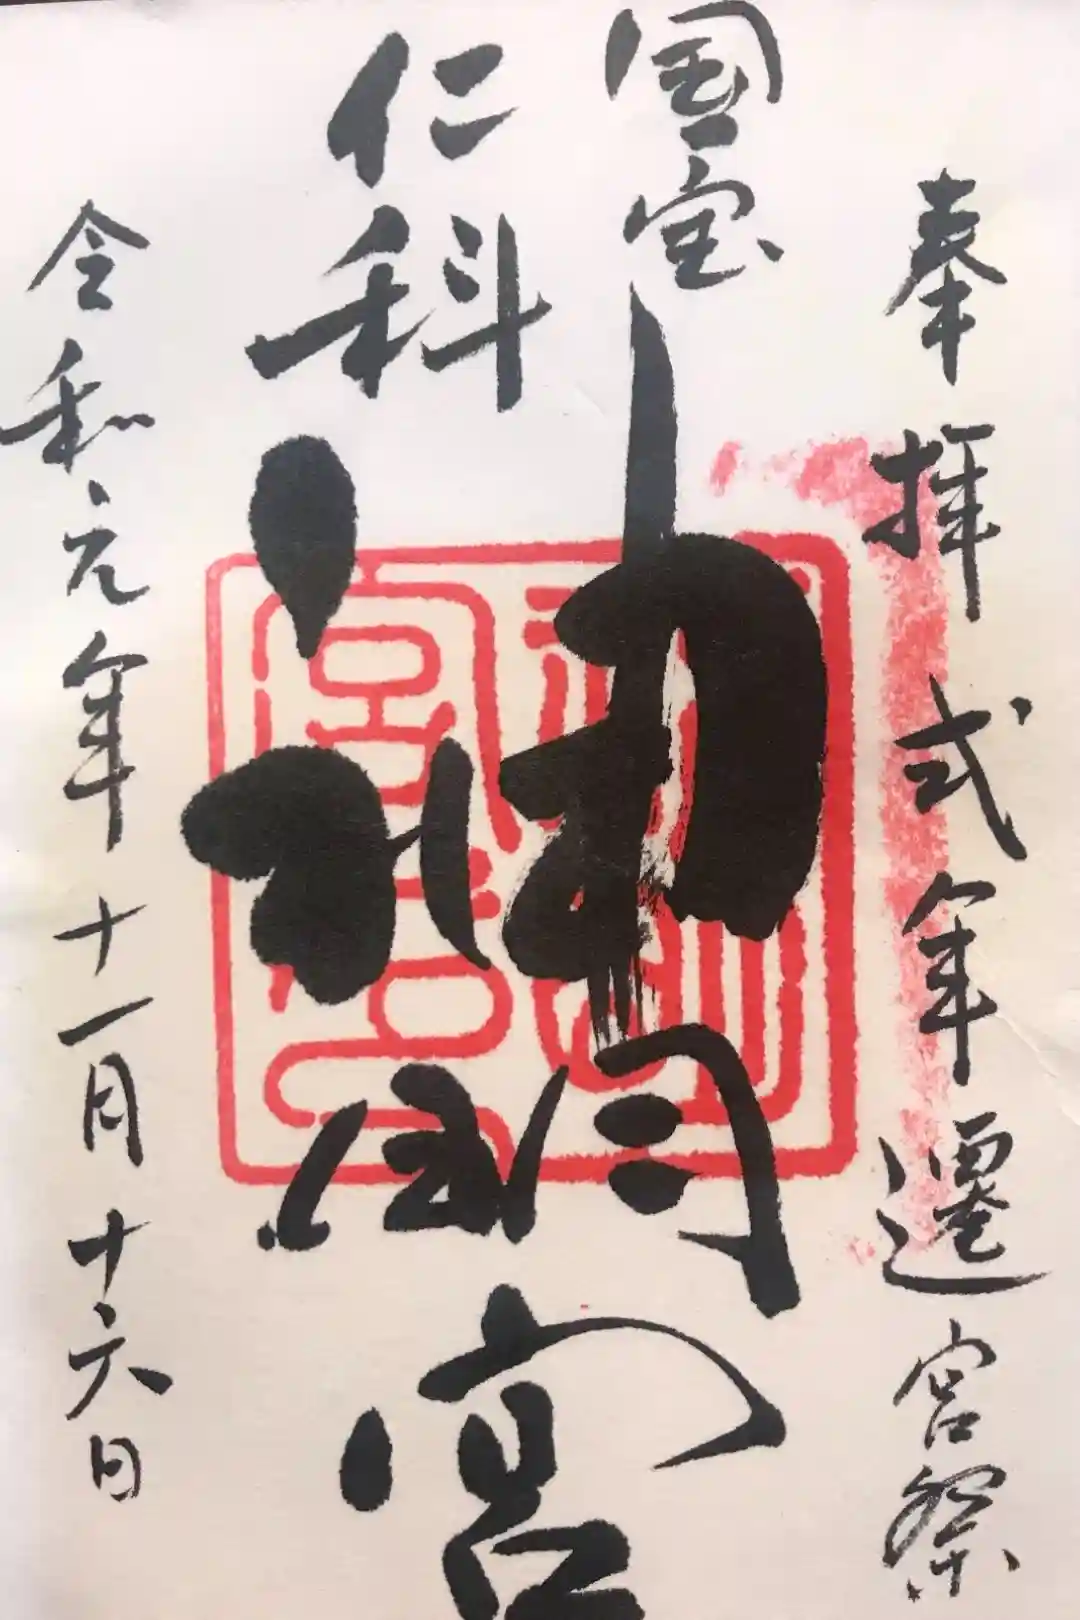 奉拝 式年遷宮祭
国宝
仁科
神明宮
令和元年十一月十六日